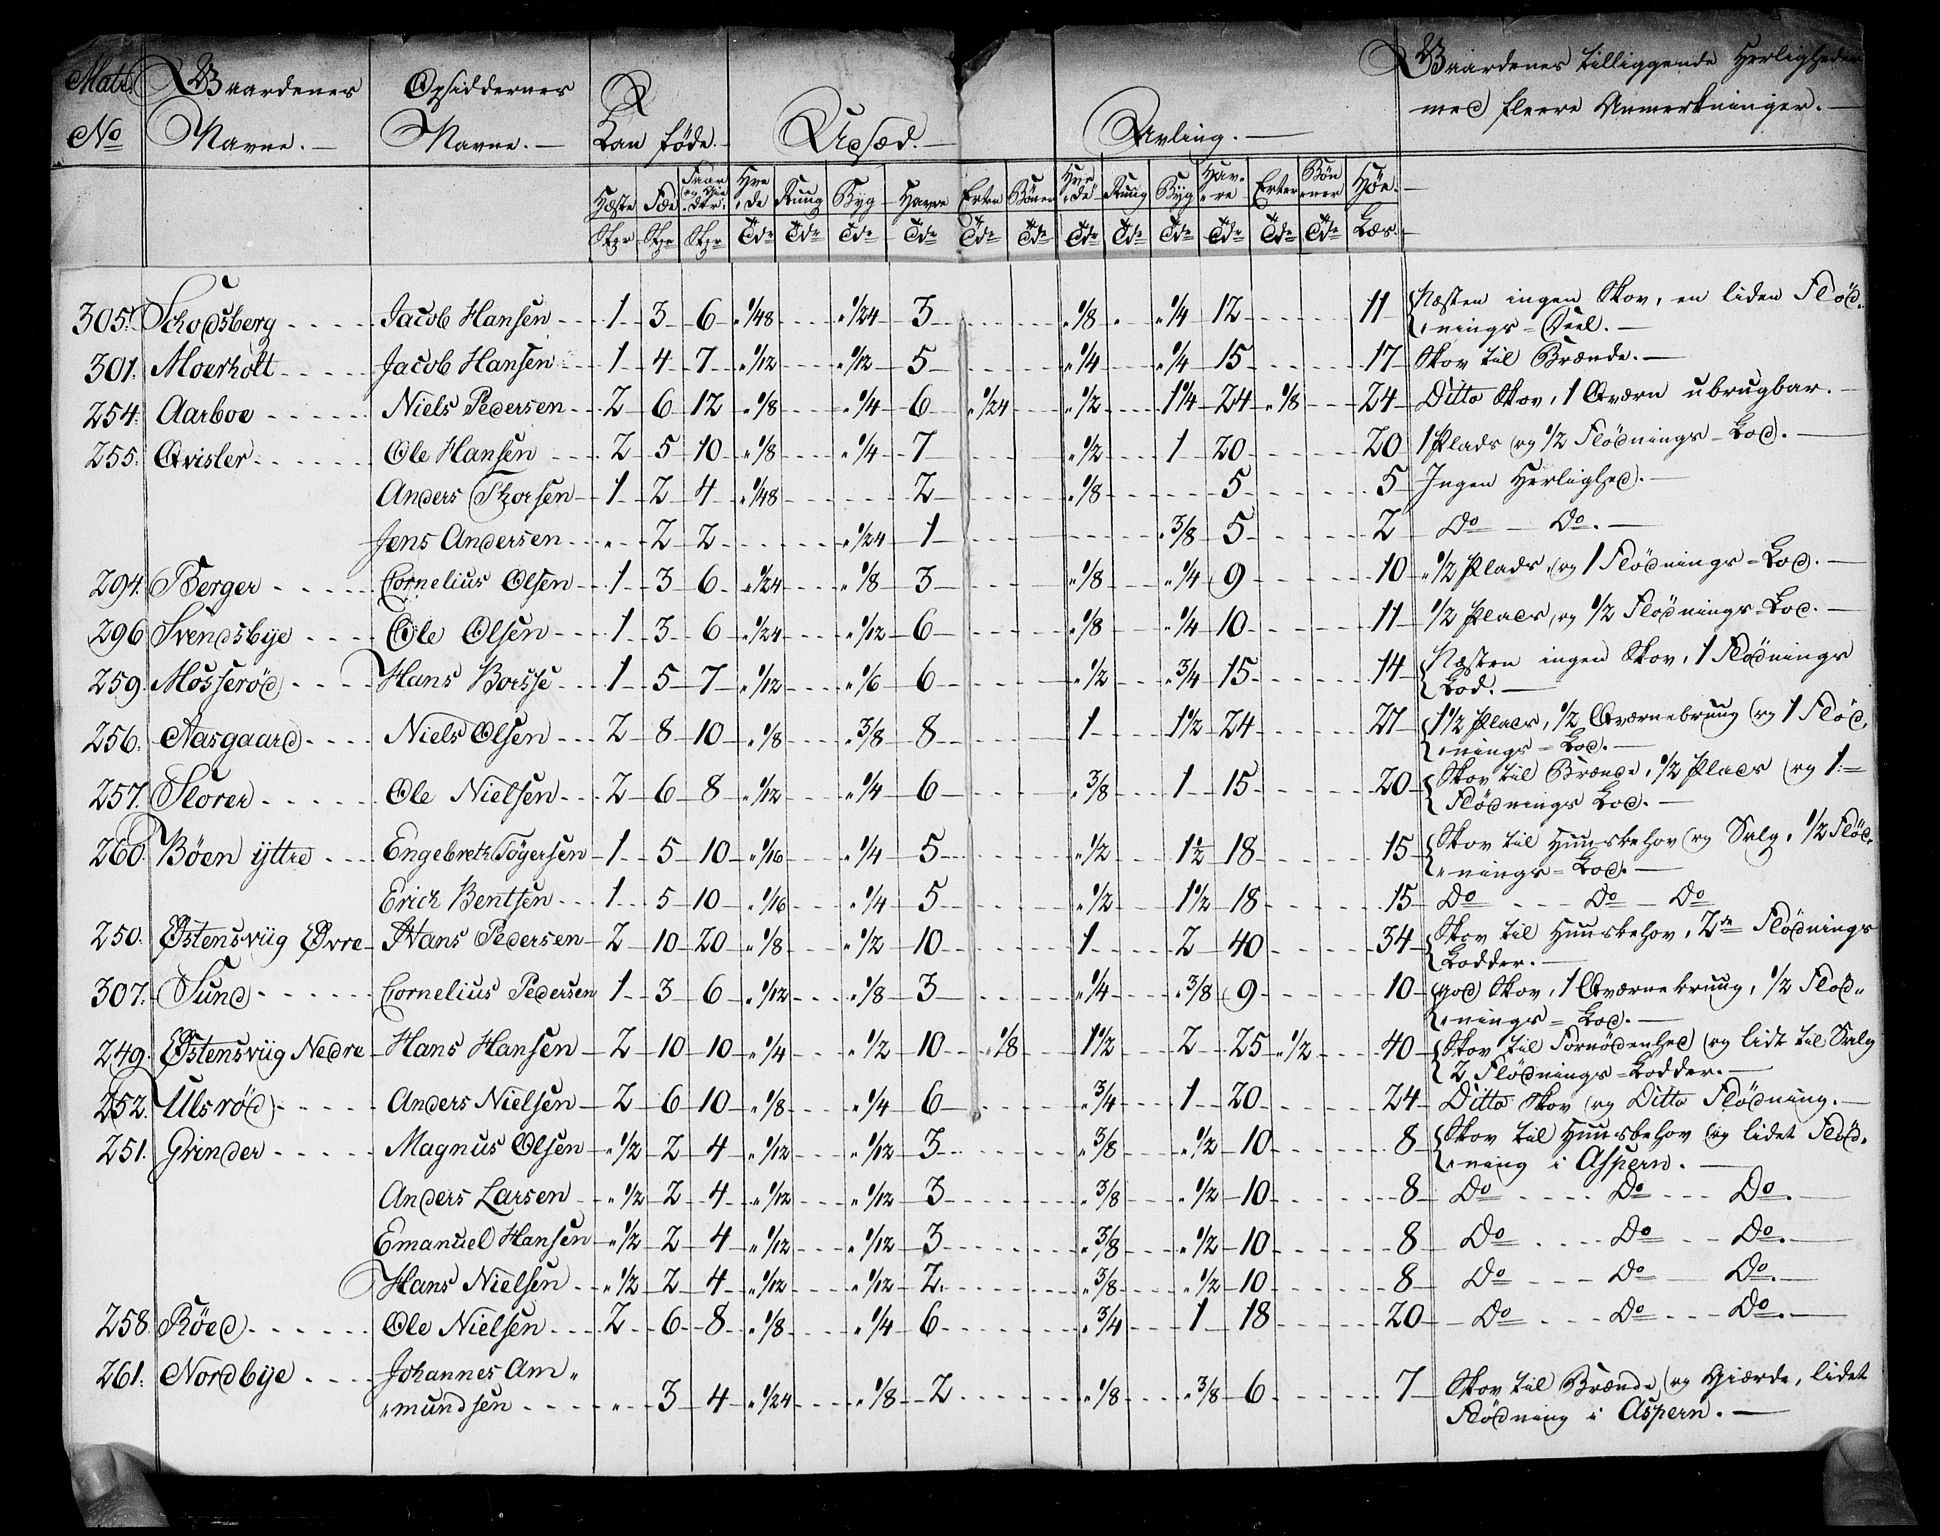 Matr. Gaardenes Opsiddernes Kan føde. Udsæd. Avling. Gaardenes tilliggende Herligheder
No Navne. Navne. med fleere Anmerkninger.
Hæste Fæe Faar og Gie- der. Hve- de Rug Byg Havre Erter Bøner Hve- de Rug Byg Hav- re Erter Bøn- ner Høe.
Stkr Stkr Stkr Tdr Tdr Tdr Tdr Tdr Tdr Tdr Tdr Tdr Tdr Tdr Tdr Læs.
305. Schodsberg Jacob Hansen 1 3 6 " 1/48 " 1/24 3 " 1/8 " 1/4 12 11 Næsten ingen Skov, en liden Flød-
nings-Deel.
301. Moerholt Jacob Hansen 1 4 7 " 1/12 " 1/12 5 " 1/4 " 1/4 15 17 Skov til Brænde.
254. Aarboe Niels Pedersen 2 6 12 " 1/8 " 1/4 6 " 1/24 " 1/2 1 1/4 24 " 1/8 24 Ditto Skov, 1 Qværn ubrugbar.
255. Qvisler Ole Hansen 2 5 10 " 1/8 " 1/4 7 " 1/2 1 20 20 1 Plads og 1/2 Flødnings-Lod.
Anders Thorsen 1 2 4 " 1/48 2 " 1/8 5 5 Ingen Herlighed.
Jens Andersen " 2 2 " 1/24 1 " 3/8 5 2 Do Do.
294. Berger Cornelius Olsen 1 3 6 " 1/24 " 1/8 3 " 1/8 " 1/4 9 10 " 1/2 Plads, og 1 Flødnings-Lod.
296 Svendsbye Ole Olsen 1 3 6 " 1/24 " 1/12 6 " 1/8 " 1/4 10 11 1/2 Plads, og 1/2 Flødnings-Lod.
259. Mosserød Hans Borsse 1 5 7 " 1/12 " 1/6 6 " 1/2 " 3/4 15 14 Næsten ingen Skov, 1 Flødnings
Lod.
256. Aasgaard Niels Olsen 2 8 10 " 1/8 " 3/8 8 1 1 1/2 24 27 1 1/2 Plads, 1/2 Qværnebruug og 1 Flød-
nings-Lod.
257. Slorer Ole Nielsen 2 6 8 " 1/12 " 1/4 6 " 3/8 1 15 20 Skov til Brænde, 1/2 Plads og 1
Flødnings Lod.
260. Bøen yttre Engebreth Tögersen 1 5 10 " 1/16 " 1/4 5 " 1/2 1 1/2 18 15 Skov til Huusbehov og Salg, 1/2 Flød-
nings-Lod.
Erich Bentsen 1 5 10 " 1/16 " 1/4 5 " 1/2 1 1/2 18 15 Do Do Do
250. Østensviig Øvre Hans Pedersen 2 10 20 " 1/8 " 1/2 10 1 2 40 34 Skov til Huusbehov, 2de Flødnings
Lodder.
307. Sund Cornelius Pedersen 1 3 6 " 1/12 " 1/8 3 " 1/4 " 3/8 9 10 God Skov, 1 Qværnebruug, 1/2 Flød-
nings-Lod.
249. Østensviig Nedre Hans Hansen 2 10 10 " 1/4 " 1/2 10 " 1/8 1 1/2 2 25 " 1/2 40 Skov til Fornødenhed og lidt til Salg
2 Flodnings-Lodder.
252. Ulsrød Anders Nielsen 2 6 10 " 1/8 " 1/4 6 " 3/4 1 20 24 Ditto Skov og Ditto Flødning.
251. Grinder Magnus Olsen " 1/2 2 4 " 1/12 " 1/12 3 " 3/8 " 1/2 10 8 Skov til Huusbehov og lidet Flød-
ning i Aspern.
Anders Larsen " 1/2 2 4 " 1/12 " 1/12 3 " 3/8 " 1/2 10 8 Do Do Do.
Emanuel Hansen " 1/2 2 4 " 1/12 " 1/12 3 " 3/8 " 1/2 10 8 Do Do Do.
Hans Nielsen " 1/2 2 4 " 1/12 " 1/12 2 " 3/8 " 1/2 10 8 Do Do Do.
258. Röed Ole Nielsen 2 6 8 " 1/8 " 1/4 6 " 3/4 1 18 20 Do Do Do.
261. Nordbye Johannes Am-
mundsen " 3 4 " 1/24 " 1/8 2 " 1/8 " 3/8 6 7 Skov til Brænde, og Giærde, lidet
Flødning i Aspern.